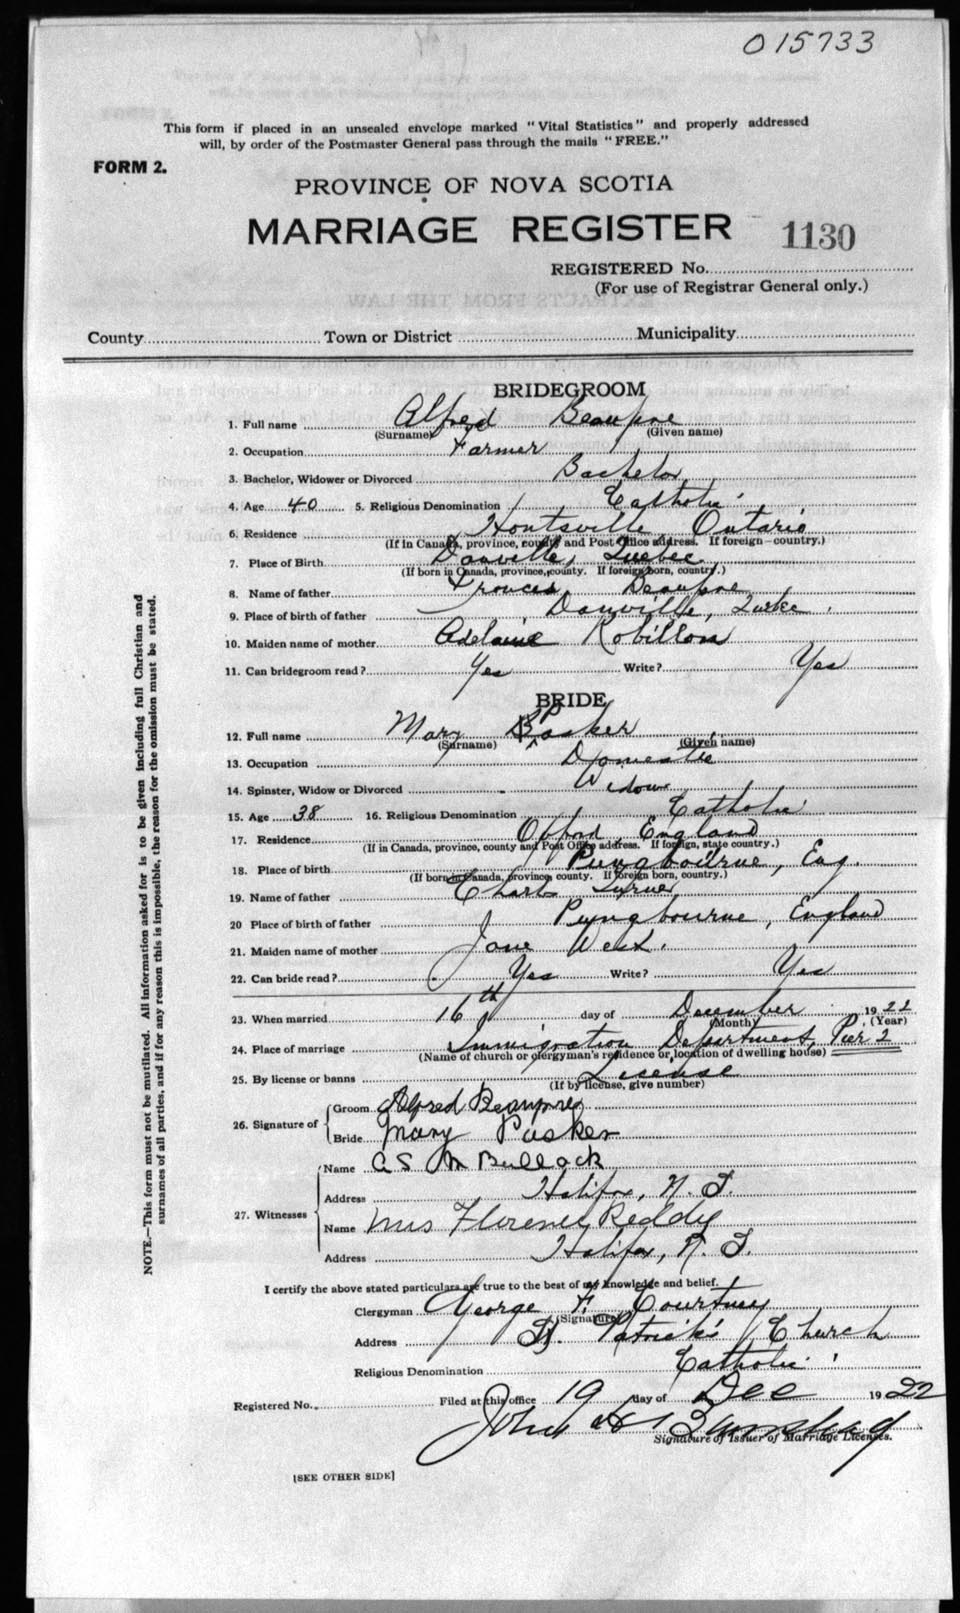 015733
This form if placed in an unsealed envelope marked "Vital Statistics" and properly addressed
will, by order of the Postmaster General pass through the mails "FREE."
FORM 2.
PROVINCE OF NOVA SCOTIA
MARRIAGE REGISTER 1130
REGISTERED No.
(For use of Registrar General only.)
County Town or District Municipality
BRIDEGROOM
1. Full name Alfred Beaupre
(Surname) (Given name)
2. Occupation Farmer
3. Bachelor, Widower or Divorced Bachelor
4. Age 40 5. Religious Denomination Catholic
6. Residence Hontsville Ontario
(If in Canada, province, county and Post Office address. If foreign—country.)
7. Place of Birth Danville, Quebec
(If born in Canada, province, county. If foreign born, country.)
8. Name of father Beaupre
9. Place of birth of father Danville,
10. Maiden name of mother Adelaine
11. Can bridegroom read? Yes Write? Yes
BRIDE
12. Full name Mary Pasker
(Surname) (Given name)
13. Occupation Domestic
14. Spinster, Widow or Divorced Widow
15. Age 38 16. Religious Denomination Catholic
17. Residence England
(If in Canada, province, county and Post Office address. If foreign, state country.)
18. Place of birth Pungbourne, Eng.
(If born in Canada, province county. If foreign born, country.)
19. Name of father
20 Place of birth of father Pyngbourne, England
21. Maiden name of mother Jane West.
22. Can bride read? Yes Write? Yes
23. When married 16th day of December 1922
(Month) (Year)
24. Place of marriage Immigration Department, Pier 2
(Name of church or clergyman's residence or location of dwelling house)
25. By license or banns License
(If by license, give number)
26. Signature of
Groom Alfred Beaupre
Bride Mary Pasker
27. Witnesses
Name A S M Bullock
Address Halifax, N. S.
Name Mrs Florence Reddy
Address Halifax, N. S.
I certify the above stated particulars are true to the best of my knowledge and belief.
Clergyman George F. Courtney
(Signature)
Address St. Patrick's Church
Religious Denomination Catholic
Registered No. Filed at this office 19 day of Dec 1922
John H Barnstead
Signature of Issuer of Marriage Licenses.
[SEE OTHER SIDE]
NOTE.—This form must not be mutilated. All information asked for is to be given including full Christian and
surnames of all parties, and if for any reason this is impossible, the reason for the omission must be stated.